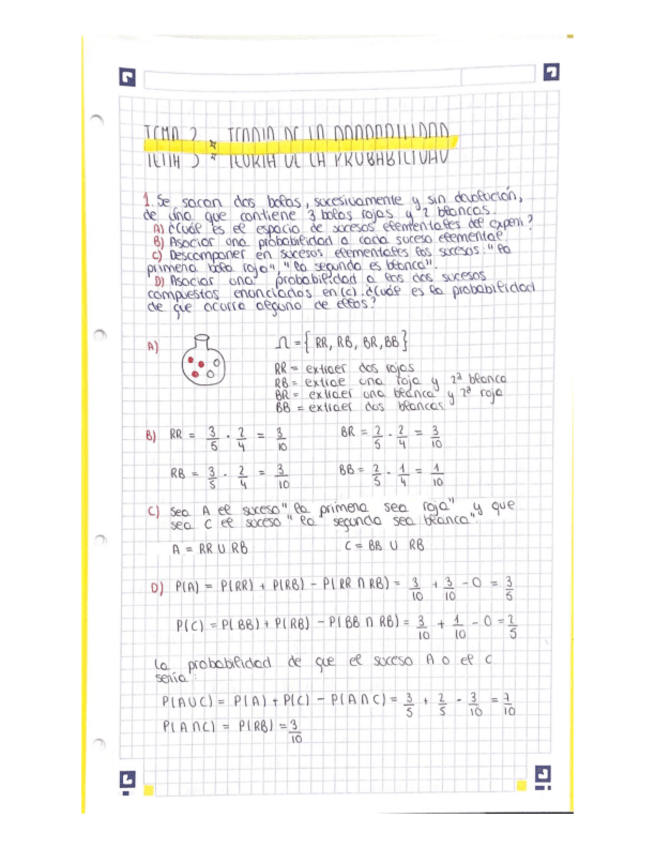 TEMA 2 : TEORIA DE LA PROBABILIDAD
1. Se sacan dos bolas, sucesivamente y sin devolución,
de una que contiene 3 bolas rojas y 2 blancas.
A) ¿Cuál es el espacio de sucesos elementales del experi?
B) Asociar una probabilidad a cada suceso elemental.
C) Descomponer en sucesos elementales los sucesos: "la
primera bola roja", "la segunda es blanca".
D) Asociar una probabilidad a los dos sucesos
compuestos enunciados en (c). ¿Cuál es la probabilidad
de que ocurra alguno de ellos?
A) Ω = { RR, RB, BR, BB }
RR = extraer dos rojas
RB = extrae una roja y 2ª blanca
BR = extraer una blanca y 2ª roja
BB = extraer dos blancas
B) RR = 3/5 · 2/4 = 3/10 BR = 2/5 · 2/4 = 3/10
RB = 3/5 · 2/4 = 3/10 BB = 2/5 · 1/4 = 1/10
C) Sea A el suceso "la primera sea roja" y que
sea C el suceso "la segunda sea blanca".
A = RR U RB C = BB U RB
D) P(A) = P(RR) + P(RB) - P(RR ∩ RB) = 3/10 + 3/10 - 0 = 3/5
P(C) = P(BB) + P(RB) - P(BB ∩ RB) = 3/10 + 1/10 - 0 = 2/5
La probabilidad de que el suceso A o el C
sería:
P(AUC) = P(A) + P(C) - P(A∩C) = 3/5 + 2/5 - 3/10 = 7/10
P(A∩C) = P(RB) = 3/10